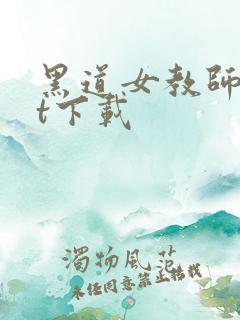 黑道女教師
t下載
濁物風範
未经同意禁止转载